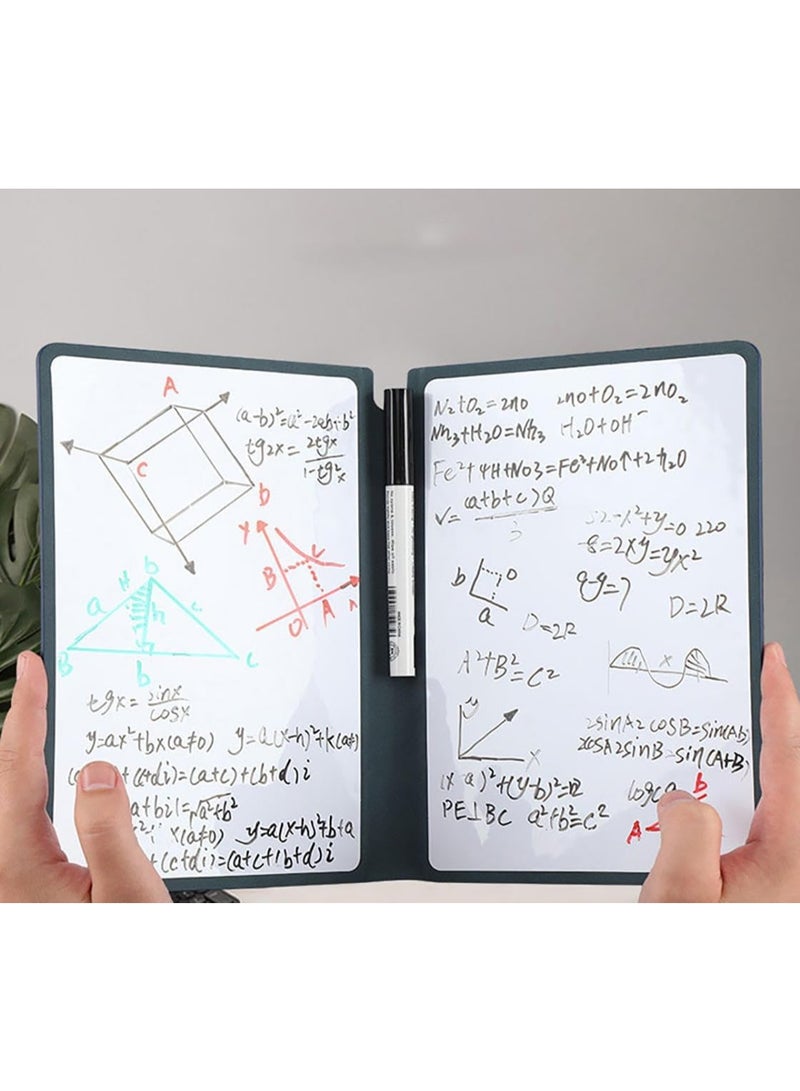 A
C
D
(a-b)²=a²-2ab+b²
tg2x=2tgx/1-tg²x
X
B
C
O
A
b
H
a
h
c
B
b
C
tgx=sinx/cosx
y=ax²+bx(a≠0) y=a(x-h)²+k(a≠
+(c+di)=(a+c)+(b+d)i
a+bi|=√a²+b²
x(a≠0) y=a(x-h)²+b+a
(c+di)=(a+c+(b+d)i
N₂+O₂=2no 2no+O₂=2nO₂
Nh₃+H₂O=Nh₃ H₂O+OH⁻
Fe²+4H+NO3=Fe³+No↑+2h₂O
V=(a+b+c)Q/3
-x²+y=0 220
-8=2xy=yx²
9-y=7
b
O
a
D=2R
D=2R
A²+B²=C²
x
y
X
2sinA2cosB=sin(Ab)
2cosA2sinB=sin(A+B)
(x-a)²+(y-b)²=
PE⊥BC a²+b²=c²
log
b
A